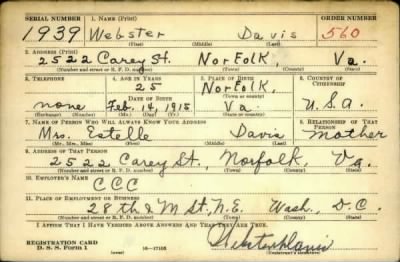 SERIAL NUMBER 1. NAME (Print) ORDER NUMBER
1939 Webster Davis 560
(First) (Middle) (Last)
2. ADDRESS (Print)
2522 Carey St. Norfolk, Va.
(Number and street or R. F. D. number) (Town) (County) (State)
3. TELEPHONE 4. AGE IN YEARS 5. PLACE OF BIRTH 6. COUNTRY OF CITIZENSHIP
25 Norfolk,
DATE OF BIRTH (Town or county)
none Feb. 14, 1915 Va. U.S.a.
(Exchange) (Number) (Mo.) (Day) (Yr.) (State or country)
7. NAME OF PERSON WHO WILL ALWAYS KNOW YOUR ADDRESS 8. RELATIONSHIP OF THAT PERSON
Mrs. Estelle Davis Mother
(Mr., Mrs., Miss) (First) (Middle) (Last)
9. ADDRESS OF THAT PERSON
2522 Carey St., Norfolk, Va.
(Number and street or R. F. D. number) (Town) (County) (State)
10. EMPLOYER'S NAME
CCC
11. PLACE OF EMPLOYMENT OR BUSINESS
28th & M St., N.E. Wash., D.C.
(Number and street or R. F. D. number) (Town) (County) (State)
I AFFIRM THAT I HAVE VERIFIED ABOVE ANSWERS AND THAT THEY ARE TRUE.
REGISTRATION CARD
D. S. S. Form 1 (over) 16—17105 Webster Davis
(Registrant's signature)